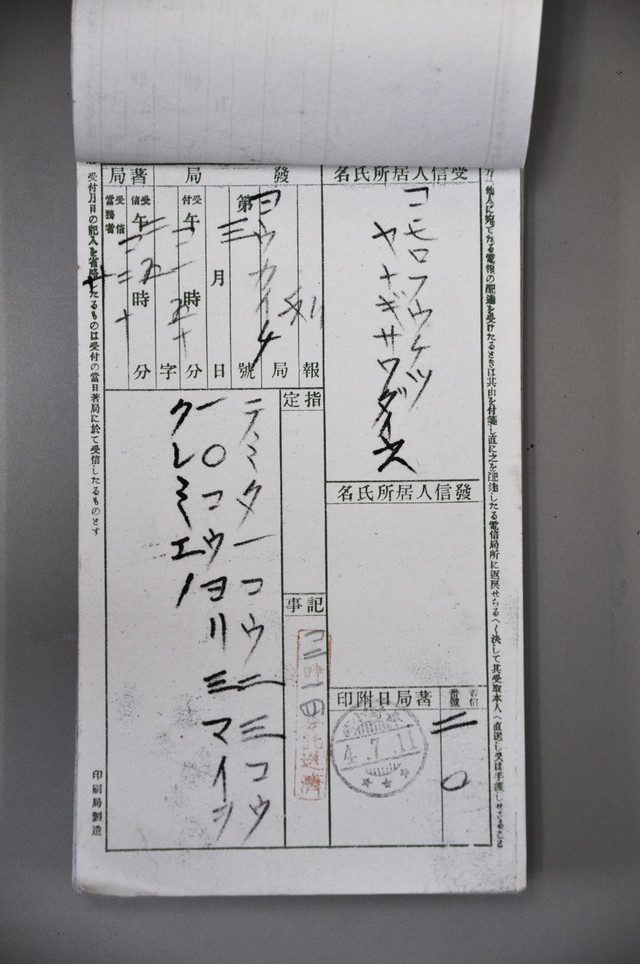 他人に宛てたる電報の配達を受けたるときは其由を付箋し直に之を配達したる電信局所に返戻せらるへく決して其受取本人へ直送し又は手渡しせさること
受信人居所氏名
コモロフウケツ
ヤナギサワダイス
發信人居所氏名
著局日附印
著信番號
二〇
4.7.11
發局
ヨウカイチ
局
報
第三號
月日
受付午
時
分
字
著局
受信午
時
分
受信當務者
指定
記事
テミタ一コウ二三コウ
一〇コウヨリ三マイヅ
クレミエノ
受付月日の記入を省略したるものは受付の當日著局に於て受信したるものとす
印刷局製造